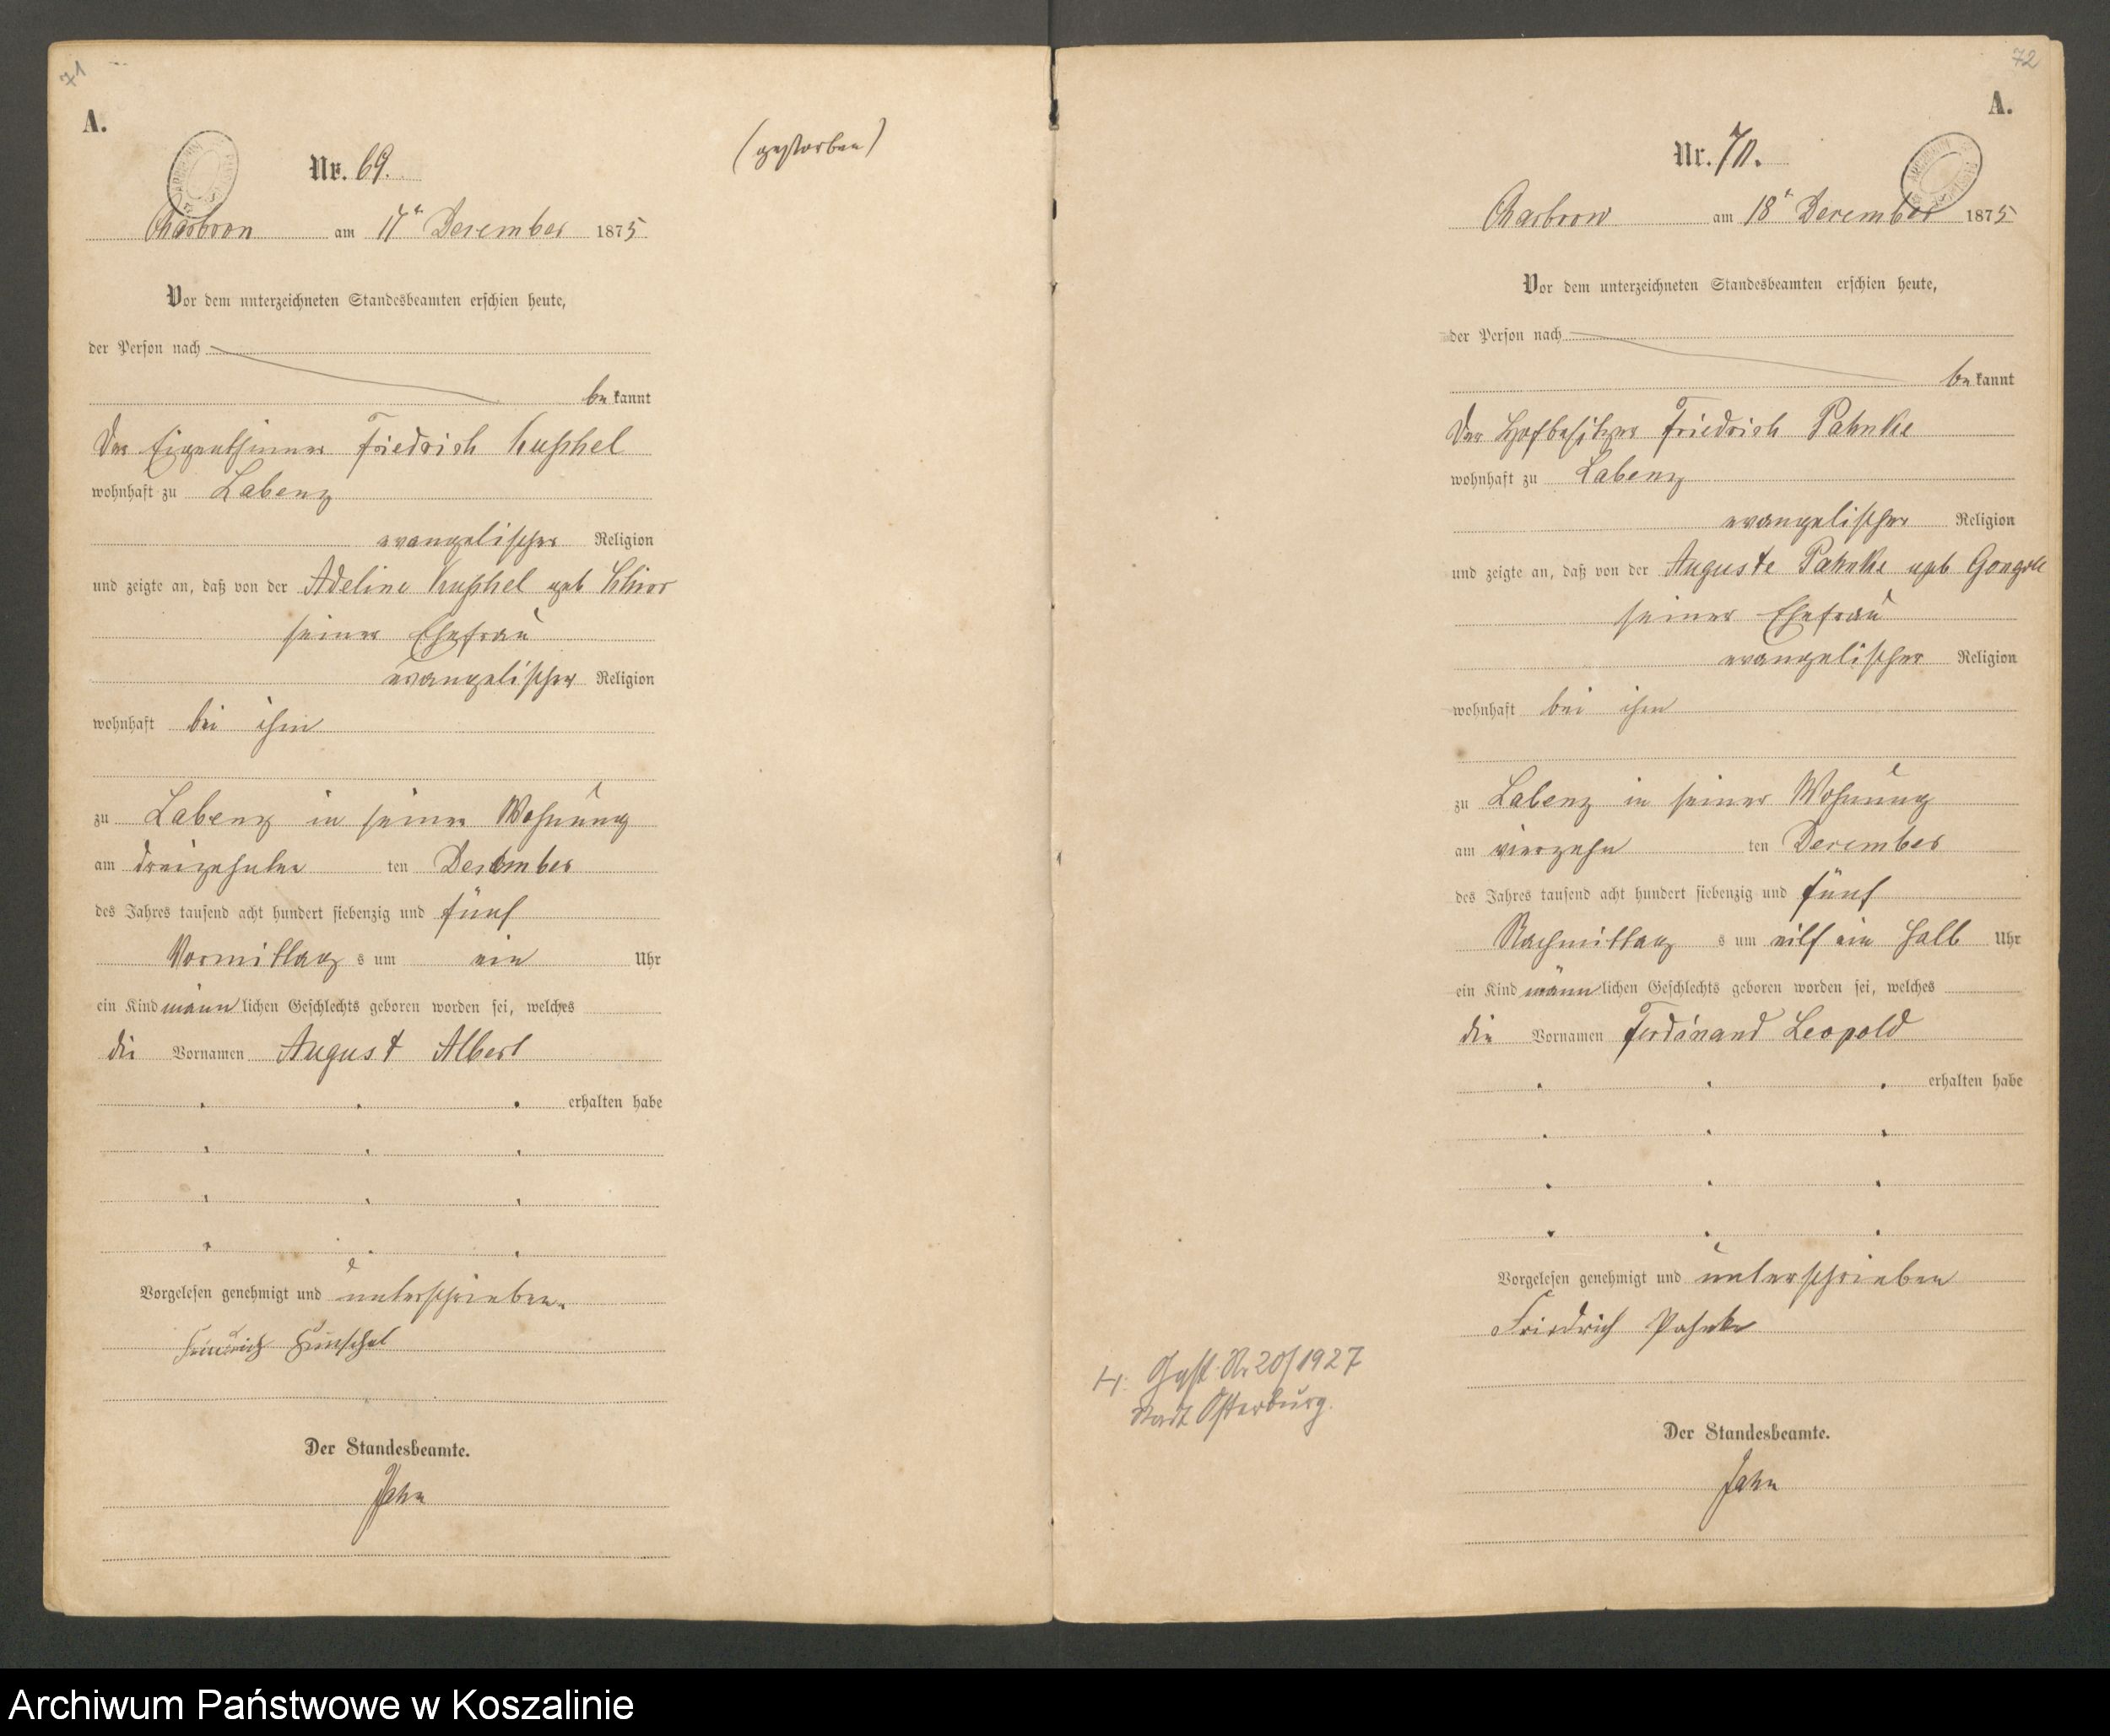 71
A.
Nr. 69.
(gestorben)
Charbrow am 17ⁿ December 1875
Vor dem unterzeichneten Standesbeamten erschien heute,
der Person nach
be kannt
Der Eigenthümer Friedrich
wohnhaft zu Labenz
evangelischer Religion
und zeigte an, daß von der Adeline geb
seiner Ehefrau
evangelischer Religion
wohnhaft bei ihm
zu Labenz in seiner Wohnung
am dreizehnten ten December
des Jahres tausend acht hundert siebenzig und fünf
Vormittag s um ein Uhr
ein Kind männ lichen Geschlechts geboren worden sei, welches
die Vornamen August Albert
erhalten habe
Vorgelesen genehmigt und unterschrieben.
Der Standesbeamte.
Jahn
72
A.
Nr. 70.
Charbrow am 18ⁿ December 1875
Vor dem unterzeichneten Standesbeamten erschien heute,
der Person nach
be kannt
Der Hofbesitzer Friedrich Pahnke
wohnhaft zu Labenz
evangelischer Religion
und zeigte an, daß von der Auguste Pahnke geb
seiner Ehefrau
evangelischer Religion
wohnhaft bei ihm
zu Labenz in seiner Wohnung
am vierzehn ten December
des Jahres tausend acht hundert siebenzig und fünf
Nachmittag s um eilf ein halb Uhr
ein Kind männ lichen Geschlechts geboren worden sei, welches
die Vornamen Ferdinand Leopold
erhalten habe
Vorgelesen genehmigt und unterschrieben
Friedrich Pahnke
Nr 20/1927
Stadt Osterburg.
Der Standesbeamte.
Jahn
Archiwum Państwowe w Koszalinie